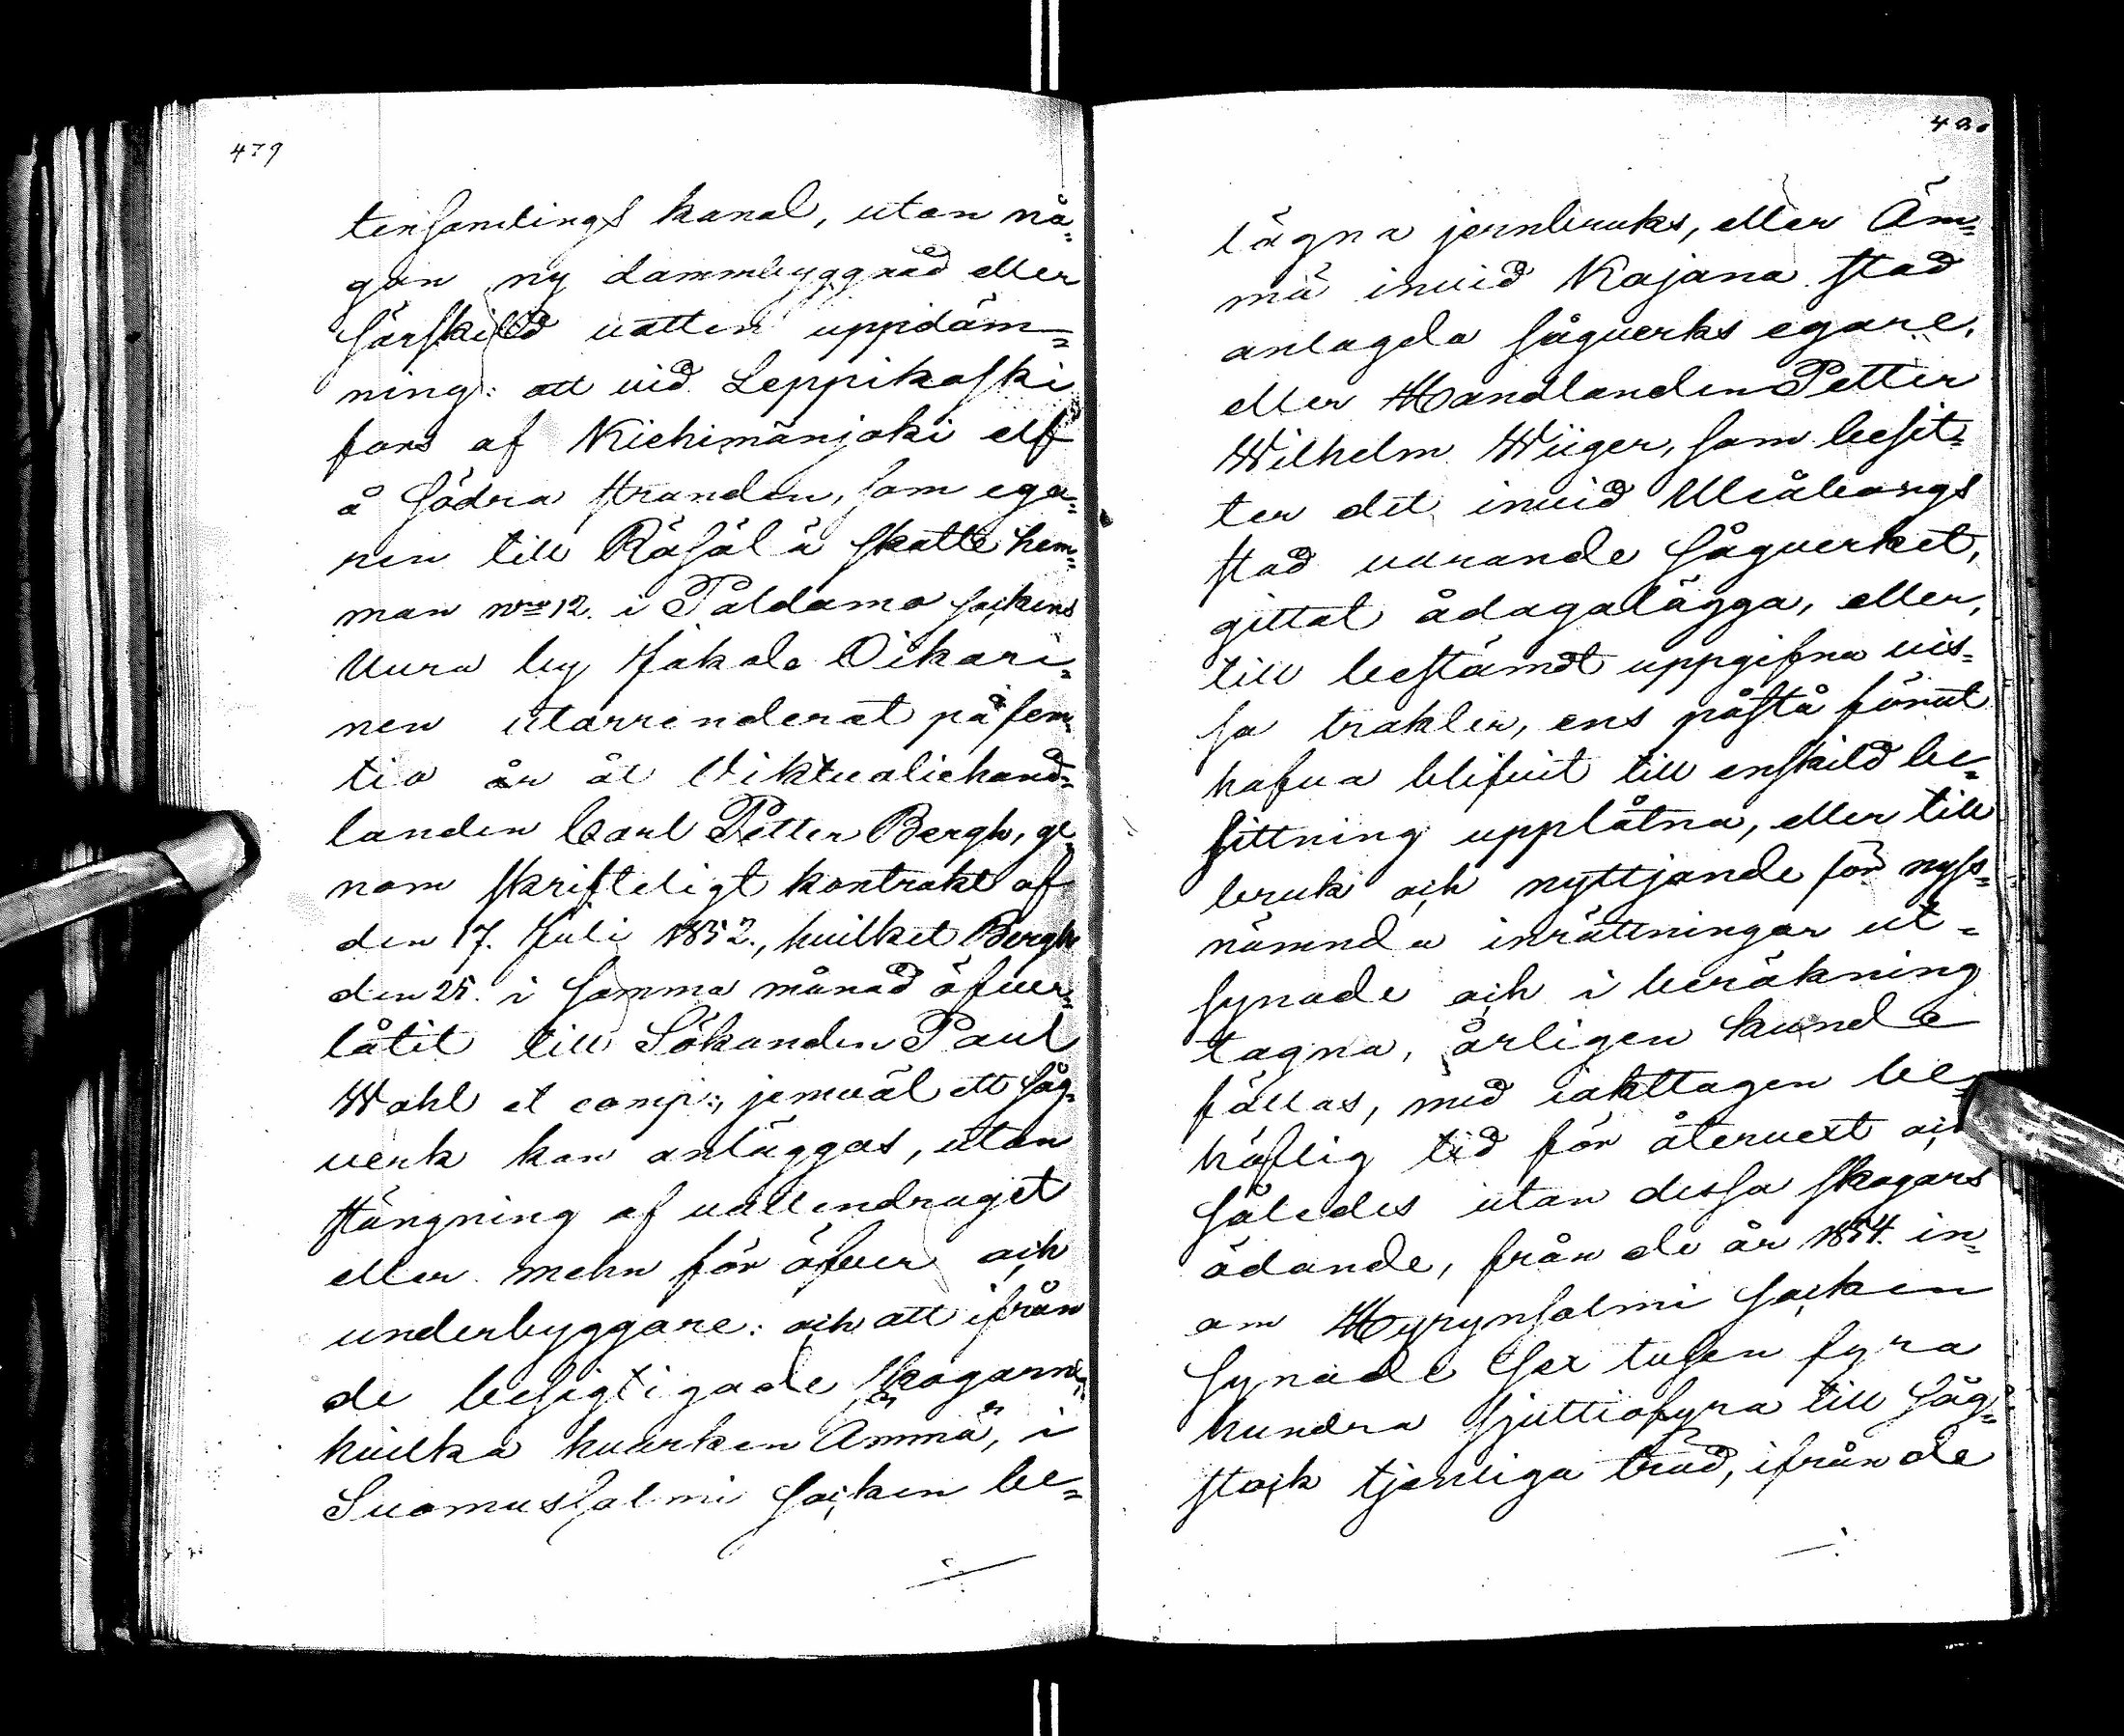 479
tensamlings kanal, utan nå-
gon ny dammbyggnad eller
särskild vatten uppdäm-
ning: att vid Leppikoski
fors af Kiehimänjoki elf
å södra stranden, som ega-
ren till Räsälä skatte hem-
man nro 12. i Paldamo sockens
Uura by Jakob Oikari-
nen utarrenderat på fem-
tio år åt Viktualiehand-
landen Carl Petter Bergh, ge-
nom skrifteligt kontrakt af
den 17. Juli 1852., hvilket Bergh
den 25. i samma månad öfver-
låtit till Sökanden Paul
Wahl et comp:, jemväl ett såg-
verk kan anläggas, utan
stängning af vattendraget
eller mehn för öfver och
underbyggare: och att ifrån
de besigtigade skogarne,
hvilka hvarken Ämmä, i
Suomussalmi socken be-
420
lägna jernbruks, eller Äm-
mä invid Kajana stad
anlagda sågverks egare,
eller Handlanden Petter
Wilhelm Wiiger, som besit-
ter det invid Uleåborgs
stad varande sågverket,
gittat ådagalägga, eller,
till bestämdt uppgifna vis-
sa trakter, ens påstå förut
hafva blifvit till enskild be-
sittning upplåtna, eller till
bruk och nyttjande för nyss-
nämnda inrättningar ut-
synade och i beräkning
tagna, årligen kunde
fällas, med iakttagen be-
höflig tid för återvext och
således utan dessa skogars
ödande, från de år 1854. in-
om Hyrynsalmi socken
synade sex tusen fyra
hundra sjuttiofyra till såg-
stock tjenliga träd, ifrån de